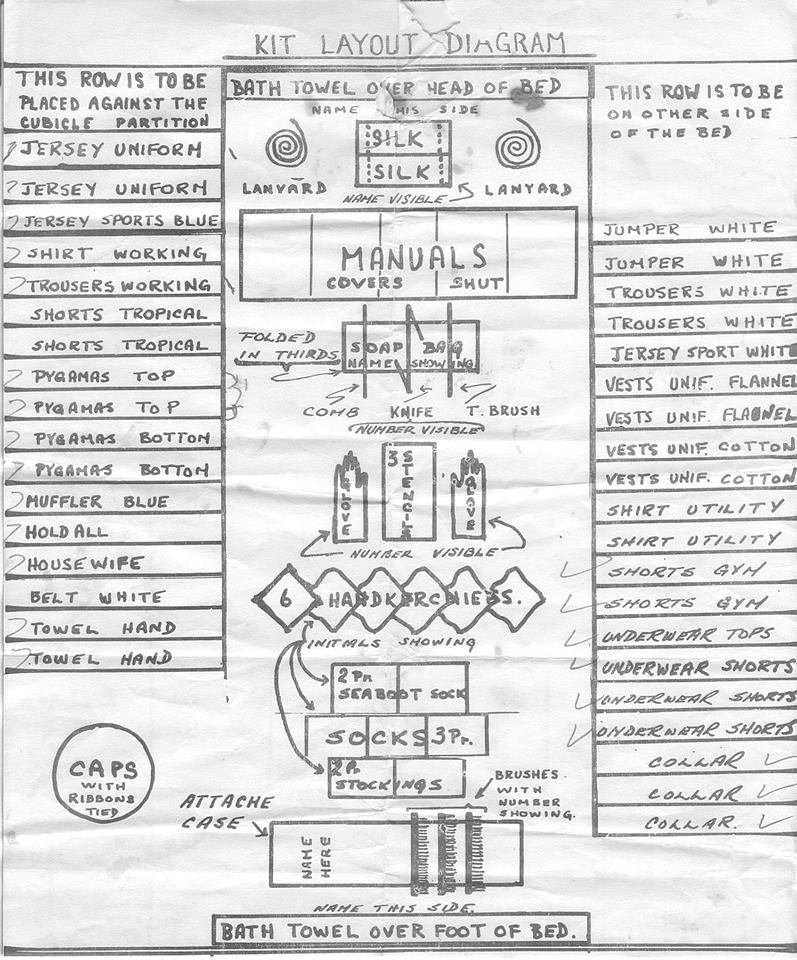 KIT LAYOUT DIAGRAM
THIS ROW IS TO BE
PLACED AGAINST THE
CUBICLE PARTITION
JERSEY UNIFORM
JERSEY UNIFORM
JERSEY SPORTS BLUE
SHIRT WORKING
TROUSERS WORKING
SHORTS TROPICAL
SHORTS TROPICAL
PYGAMAS TOP
PYGAMAS TOP
PYGAMAS BOTTOM
PYGAMAS BOTTOM
MUFFLER BLUE
HOLD ALL
HOUSEWIFE
BELT WHITE
TOWEL HAND
TOWEL HAND
CAPS
WITH
RIBBONS
TIED
BATH TOWEL OVER HEAD OF BED
NAME THIS SIDE
SILK
SILK
LANYARD
LANYARD
NAME VISIBLE
MANUALS
COVERS SHUT
FOLDED
IN THIRDS
SOAP BAG
NAME SHOWING
COMB KNIFE T. BRUSH
NUMBER VISIBLE
GLOVE
3 STENCILS
GLOVE
NUMBER VISIBLE
6 HANDKERCHIEFS.
INITIALS SHOWING
2 Pr.
SEABOOT SOCK
SOCKS 3 Pr.
2 Pr.
STOCKINGS
BRUSHES
WITH
NUMBER
SHOWING.
ATTACHE
CASE
NAME
HERE
NAME THIS SIDE.
BATH TOWEL OVER FOOT OF BED.
THIS ROW IS TO BE
ON OTHER SIDE
OF THE BED
JUMPER WHITE
JUMPER WHITE
TROUSERS WHITE
TROUSERS WHITE
JERSEY SPORT WHITE
VESTS UNIF. FLANNEL
VESTS UNIF. FLANNEL
VESTS UNIF. COTTON
VESTS UNIF. COTTON
SHIRT UTILITY
SHIRT UTILITY
SHORTS GYM
SHORTS GYM
UNDERWEAR TOPS
UNDERWEAR SHORTS
UNDERWEAR SHORTS
UNDERWEAR SHORTS
COLLAR
COLLAR
COLLAR.